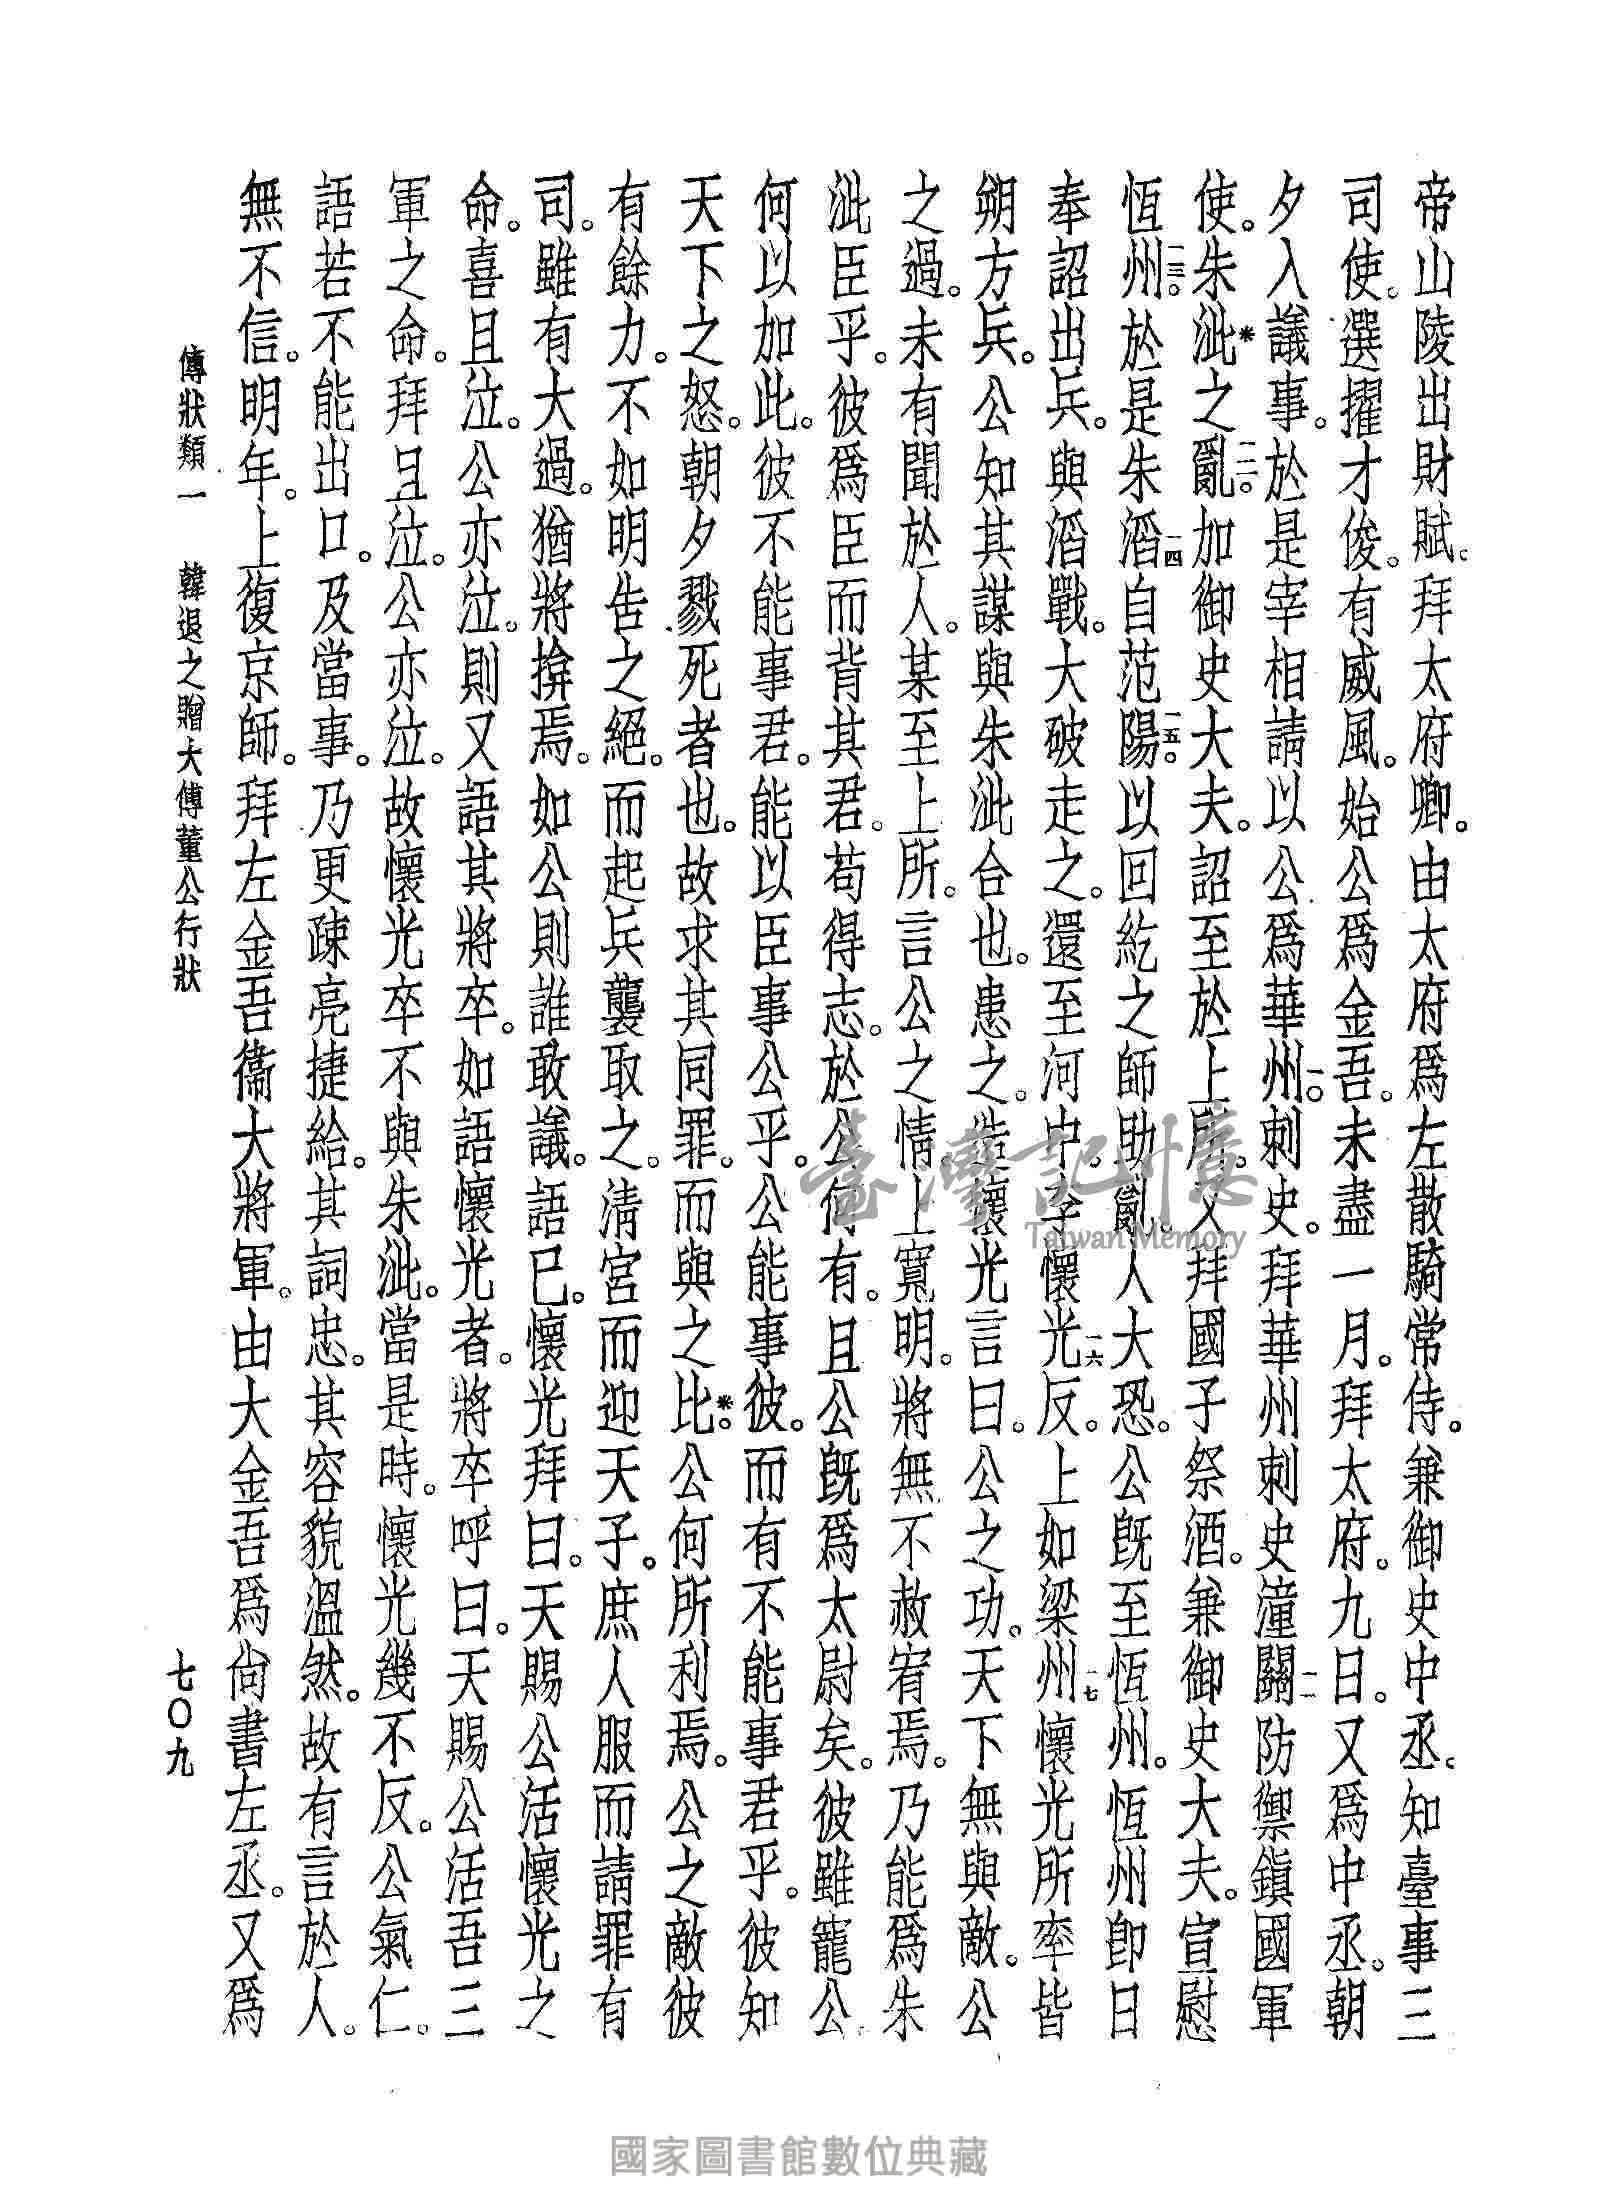 帝山陵出財賦。拜太府卿。由太府爲左散騎常侍。兼御史中丞。知臺事三
司使。選擢才俊。有威風。始公爲金吾。未盡一月。拜太府。九日。又爲中丞。朝
夕入議事。於是宰相請以公爲華州一〇刺史。拜華州刺史潼關一一防禦鎮國軍
使。朱泚*之亂一二。加御史大夫。詔至於上所。又拜國子祭酒。兼御史大夫。宣慰
恆州一三。於是朱滔一四自范陽一五。以回紇之師助亂。人大恐。公旣至恆州。恆州卽日
奉詔出兵。與滔戰。大破走之。還至河中。李懷光一六反。上如梁州一七懷光所率皆
朔方兵。公知其謀與朱泚合也。患之。造懷光言曰。公之功。天下無與敵。公
之過。未有聞於人。某至上所。言公之情。上寬明。將無不赦宥焉。乃能爲朱
泚臣乎。彼爲臣而背其君。苟得志。於公何有。且公旣爲太尉矣。彼雖寵公。
何以加此。彼不能事君。能以臣事公乎。公能事彼。而有不能事君乎。彼知
天下之怒。朝夕戮死者也。故求其同罪。而與之比*。公何所利焉。公之敵彼
有餘力。不如明告之絕。而起兵襲取之。清宮而迎天子。庶人服而請罪有
司。雖有大過。猶將揜焉。如公則誰敢議。語已。懷光拜曰。天賜公活懷光之
命。喜且泣。公亦泣。則又語其將卒。如語懷光者。將卒呼曰。天賜公活吾三
軍之命。拜且泣。公亦泣。故懷光卒不與朱泚。當是時。懷光幾不反。公氣仁。
語若不能出口。及當事。乃更疎亮捷給。其詞忠。其容貌溫然。故有言於人。
無不信。明年。上復京師。拜左金吾衞大將軍。由大金吾爲尙書左丞。又爲
傳狀類一　韓退之贈大傅董公行狀
七〇九
臺灣記憶
Taiwan Memory
國家圖書館數位典藏